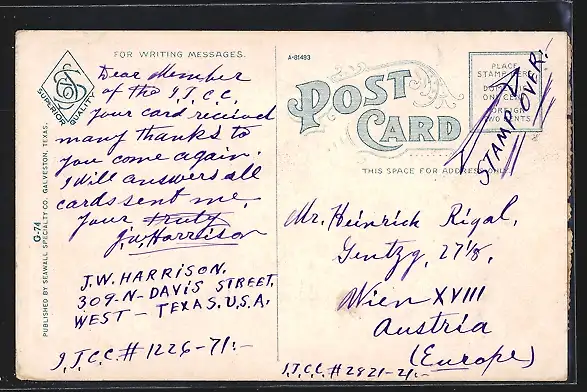 FOR WRITING MESSAGES.
A-81493
SUPERIOR QUALITY
PUBLISHED BY SEAWALL SPECIALTY CO. GALVESTON, TEXAS.
G-74
Dear Member
of the I.T.C.C.
Your card received
many thanks to
you come again.
I will answers all
cards sent me,
Your truly
J.W. Harrison
J.W. HARRISON.
309-N-DAVIS STREET.
WEST-TEXAS.U.S.A.
I.T.C.C.# 1226-71:-
POST
CARD
PLACE
STAMP HERE
STAMP OVER!
THIS SPACE FOR ADDRESS ONLY.
Mr. Heinrich Rigal,
Gentzg, 27/8,
Wien XVIII
Austria
(Europe)
I.T.C.C.# 2821-21:-